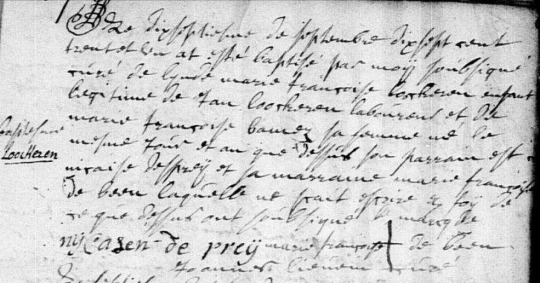 Le dixseptiesme de septembre dixsept cent
trent et un at esté baptisé par moÿ soubsigné
curé de marie françoise Locheren enfant
legitime de Jan Loocheren laboureur et de
marie françoise sa femme né le
mesme jour et an que dessus son parrain est
nicaise desprey et sa marraine marie françoise
de been laquelle ne scait escrire en foÿ de
ce que dessus ont soubsigné marque
baptesme
Loocheren
nycasen de preÿ marie françoise de been
Joannes curé